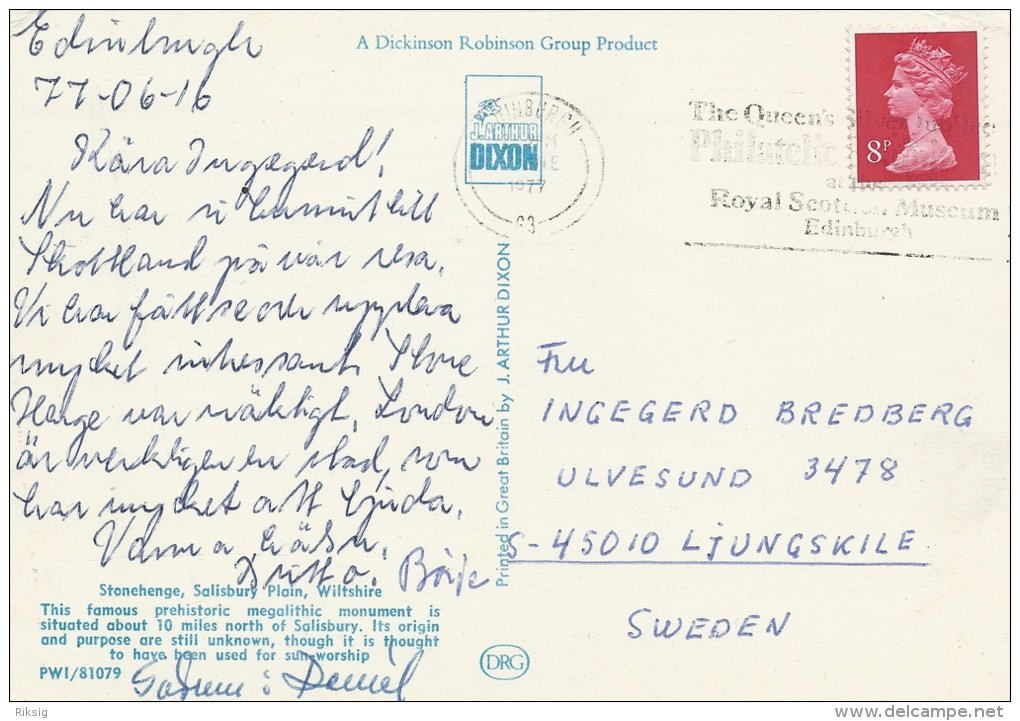 Edinburgh
77-06-16
Kära Ingegerd!
Nu har vi kommit till
Skottland på vår resa.
Vi har fått se och uppleva
mycket intressant. Stone
Henge var mäktigt. London
är verkligen en stad, som
har mycket att bjuda.
Varma hälsn.
Britta. Börje
A Dickinson Robinson Group Product
J. ARTHUR
DIXON
EDINBURGH
1977
The Queen's
Philatelic
at the
Royal Scottish Museum
Edinburgh
8P
Printed in Great Britain by J. ARTHUR DIXON
Fru
INGEGERD BREDBERG
ULVESUND 3478
S-45010 LJUNGSKILE
SWEDEN
Stonehenge, Salisbury Plain, Wiltshire
This famous prehistoric megalithic monument is
situated about 10 miles north of Salisbury. Its origin
and purpose are still unknown, though it is thought
to have been used for sun-worship
PWI/81079
DRG
Riksig
www.delcampe.net